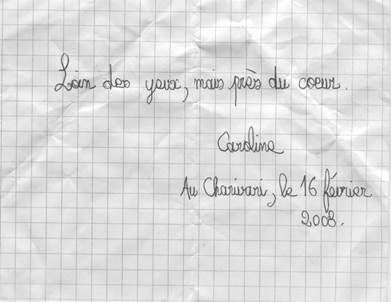 Loin des yeux, mais près du coeur.
Caroline
Au Charivari, le 16 février
2008.